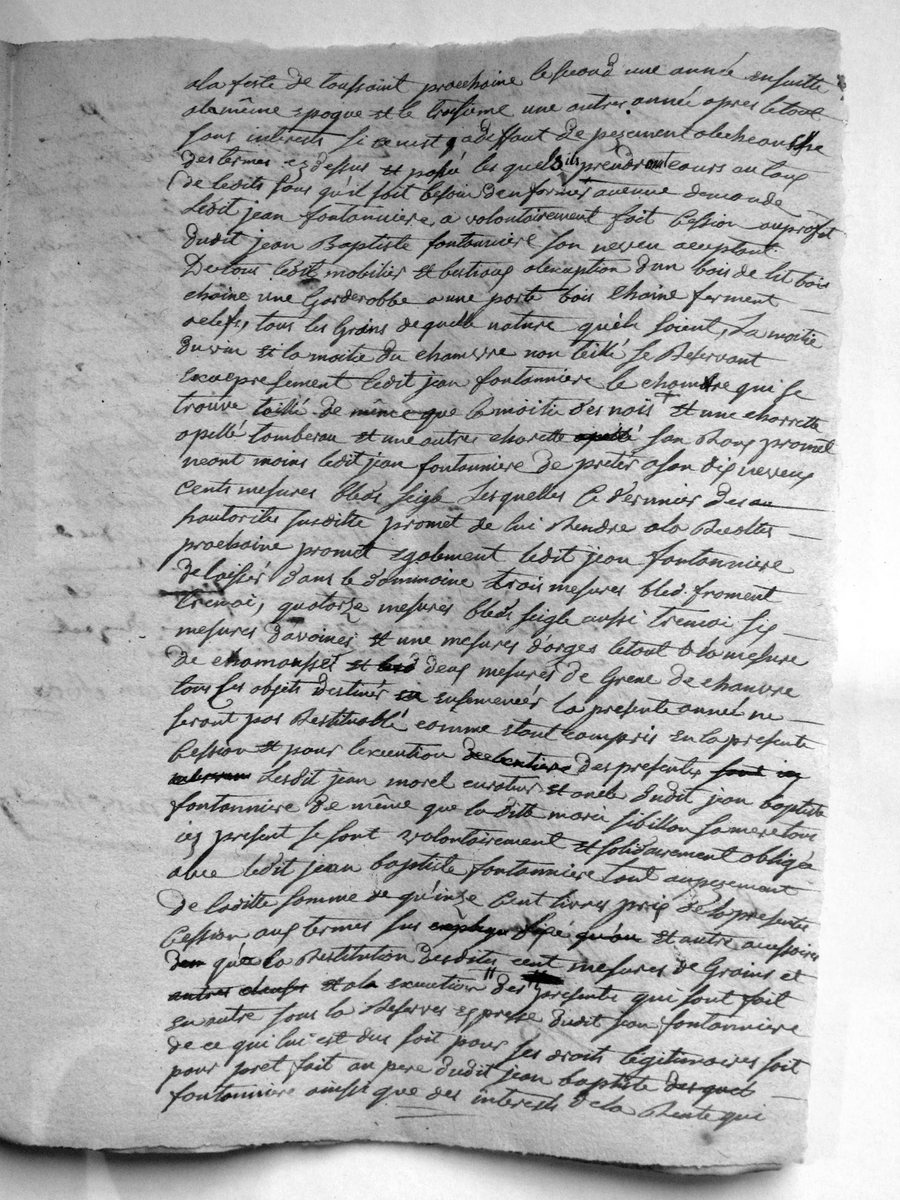 ala feste de toussaint prochaine le second une année ensuitte
ala même epoque et le troisieme une autres année apres letout
sans interests si ce nest q adeffaut de payement alecheansse
des termes cy dessus et passé les quels ils prendront cours au taux
de ledits sans qu'il soit besoin den former aucune demande
Ledit jean fontannniere, a volontairement fait Cession auprofit
dudit jean Baptiste fontanniere son neveu acceptant
De tous ledit mobilier et bestiaux alexception dun bois de lit bois
chaine une Garderobbe a une porte bois Chaine ferment
aclefs, tous les Grains dequelle nature quels soient, La moitie
du vin et la moitie du chamvre non teillé se Reservant
Exxepresement ledit jean fontanniere le chamvre qui se
trouve teillé de même que la moitie des nois + et une charrette
apellé tomberau et une autres charette apellé san Rang promet
neant moins ledit jean fontanniere de preter a son dis neveux
Cents mesures bleds seigle Lesquelles Ce dernnier de
hautorites susditte promet de lui Rendre ala Recoltes
prochaine promet egalement ledit jean fontanniere
delaisser dans le dommaine trois mesures bled froment
tremoi, quatorze mesures bleds seigle aussi tremoi six
mesures davoines et une mesures dorges letout a la mesure
de chamousset et deux mesures de Grene de chanvre
tous les objets destinés ensemencer la presente année ne
seront pas Restituablé comme etant compris en la presente
Cession et pour lexecution des presentes
Lesdit jean morel curateur et oncle dudit jean baptiste
fontanniere de même que laditte marie sibillon sa mere tous
icy present se sont volontairement et solidairement obligés
avec ledit jean baptiste fontanniere tant aupayement
de laditte somme de quinze Cent livres prix de la presente
Cession aux termes sus et autre accessoires
que la Restitution desdites cent mesures de Grains et
autres clauses et ala execution des presente qui sont fait
en outre sous la Reserves expresse dudit jean fontanniere
de ce qui lui est dus soit pour ses droits légitimaires soit
pour pret fait au pere dudit jean baptiste
fontanniere ainsi que des interests de la Rente qui